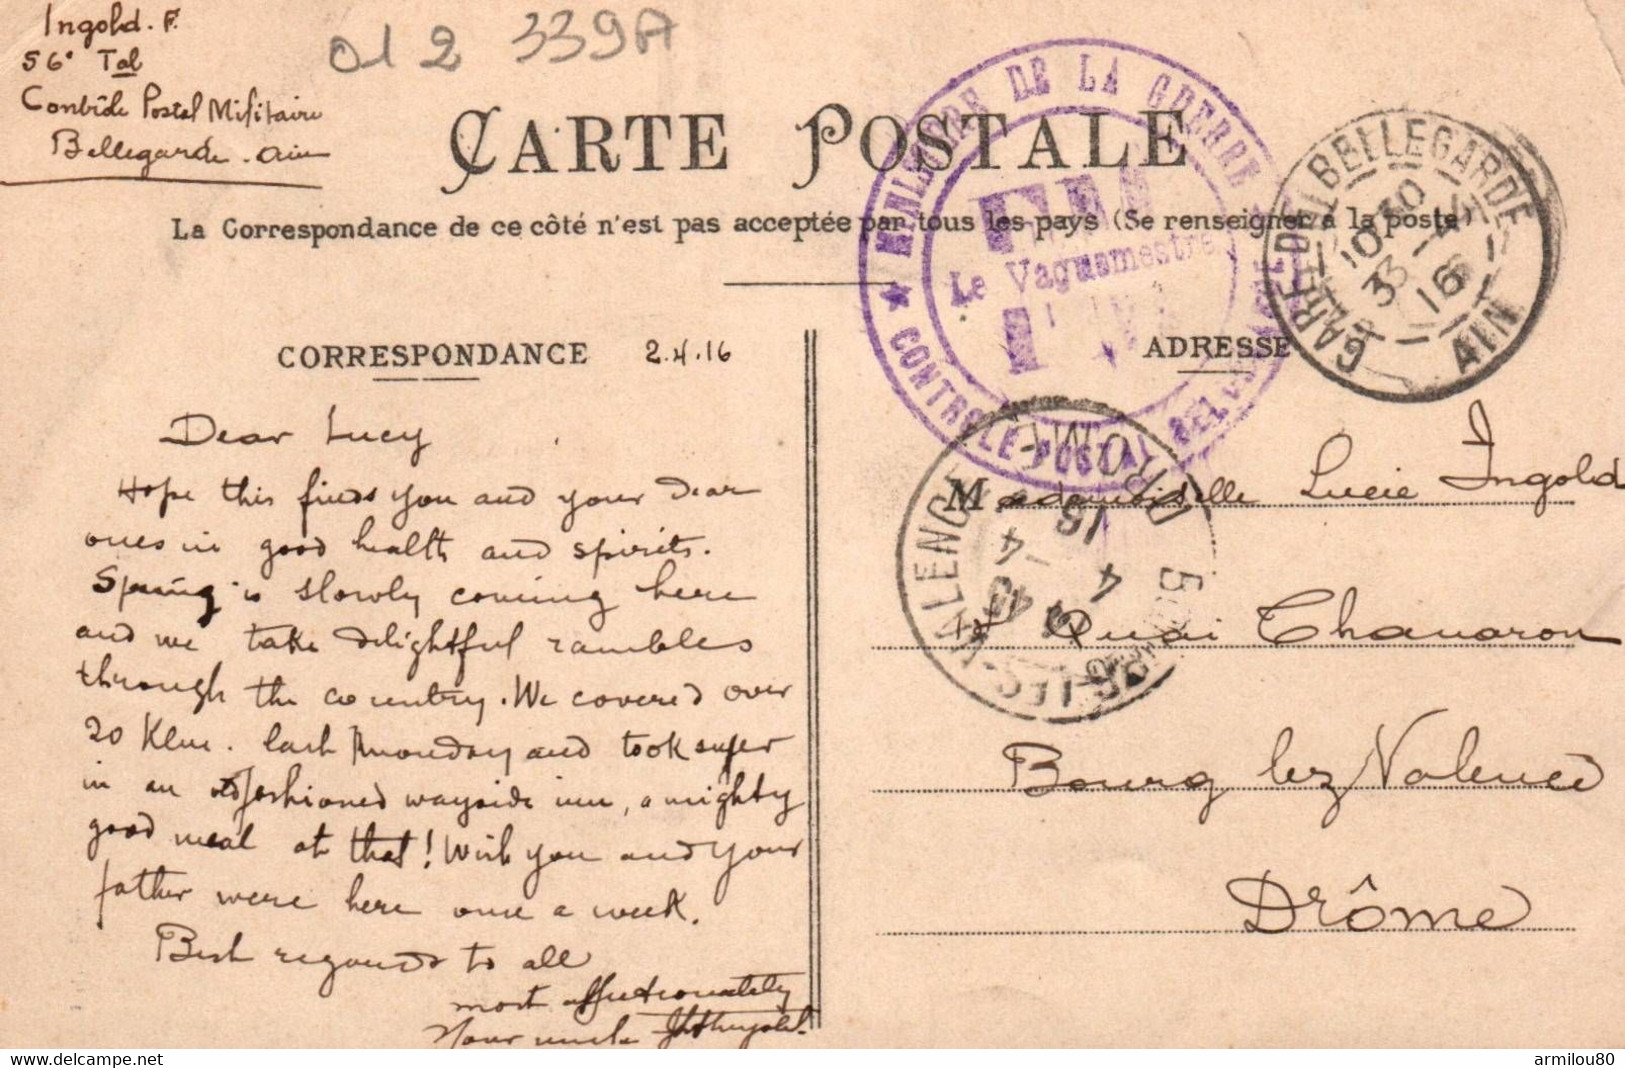 Ingold. F.
56e Tal
Contrôle Postal Militaire
Bellegarde. Ain
012 339A
CARTE POSTALE
La Correspondance de ce côté n'est pas acceptée par tous les pays (Se renseigner à la poste)
MINISTÈRE DE LA GUERRE
Le Vaguemestre
★ CONTROLE POSTAL
GARE DE BELLEGARDE
AIN
CORRESPONDANCE
2.4.16
ADRESSE
Dear Lucy
Hope this finds you and your dear
ones in good health and spirits.
Spring is slowly coming here
and we take delightful rambles
through the country. We covered over
20 Klm. last monday and took super
in an oldfashioned wayside inn, a mighty
good meal at that! Wish you and your
father were here once a week.
Best regards to all
most affectionately
Your uncle
Mademoiselle Lucie Ingold
Quai Chauaron
Bourg lez Valence
Drôme
DROME
armilou80